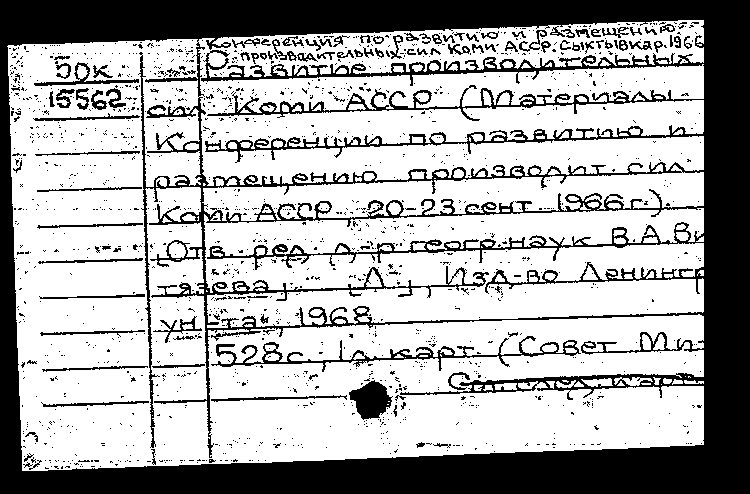 Конференция по развитию и размещению
производительных сил Коми АССР. Сыктывкар. 1966
50к
15562
Развитие производительных
сил Коми АССР (Материалы
Конференции по развитию и
размещению производит. сил
Коми АССР, 20-23 сент. 1966 г.).
[Отв. ред. д-р геогр. наук В.А. Ви-
тязева]. [Л.], Изд-во Ленингр.
ун-та, 1968.
528с., 1л. карт. (Совет Ми-
См. след. карт.